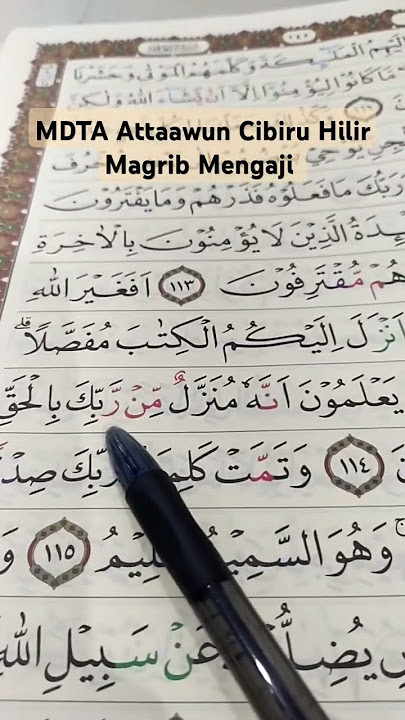 MDTA Attaawun Cibiru Hilir
Magrib Mengaji
اِلَيْهِمُ الْمَلٰۤىِٕكَةَ وَكَلَّمَهُمُ الْمَوْتٰى وَحَشَرْنَا
مَّا كَانُوْا لِيُؤْمِنُوْٓا اِلَّآ اَنْ يَّشَاۤءَ اللّٰهُ وَلٰكِنَّ
رَبُّكَ مَا فَعَلُوْهُ فَذَرْهُمْ وَمَا يَفْتَرُوْنَ
الَّذِيْنَ لَا يُؤْمِنُوْنَ بِالْاٰخِرَةِ
هُمْ مُّقْتَرِفُوْنَ ١١٣ اَفَغَيْرَ اللّٰهِ
اَنْزَلَ اِلَيْكُمُ الْكِتٰبَ مُفَصَّلًا
يَعْلَمُوْنَ اَنَّهٗ مُنَزَّلٌ مِّنْ رَّبِّكَ بِالْحَقِّ
١١٤ وَتَمَّتْ رَبِّكَ
وَهُوَ ١١٥
عَنْ سَبِيْلِ اللّٰهِ